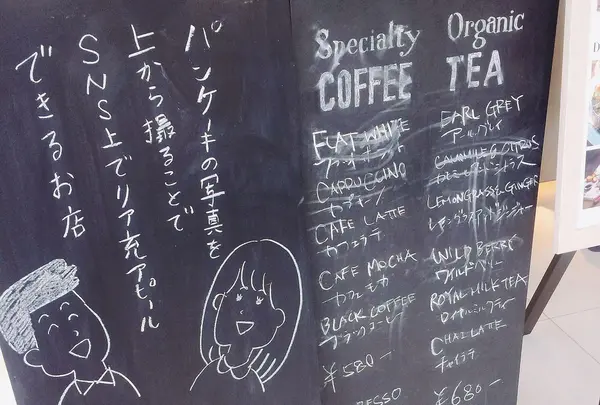 パンケーキの写真を
上から撮ることで
SNS上でリア充アピール
できるお店
Specialty
COFFEE
FLAT WHITE
CAPPUCCINO
CAFE LATTE
カフェラテ
CAFE MOCHA
カフェモカ
BLACK COFFEE
ブラックコーヒー
¥580-
Organic
TEA
EARL GREY
アールグレイ
CAMOMILE & CITRUS
LEMONGRASS & GINGER
レモングラスアンドジンジャー
WILD BERRY
ワイルドベリー
ROYAL MILK TEA
ロイヤルミルクティー
CHAI LATTE
チャイラテ
¥680-